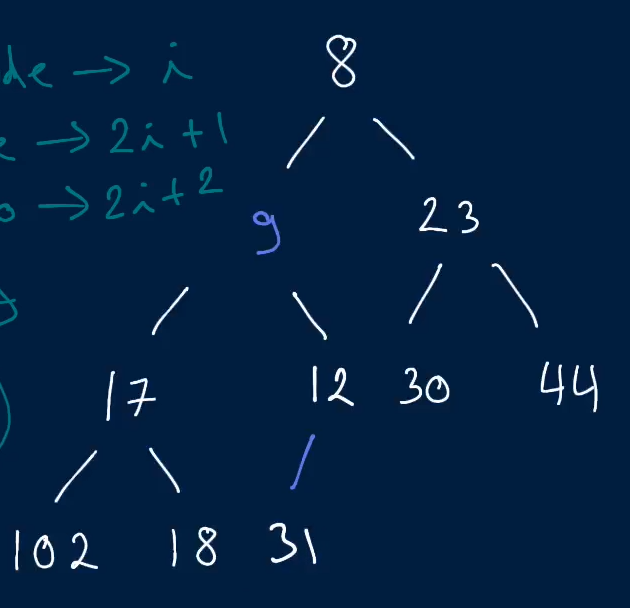 → i
8
→ 2i+1
→ 2i+2
9 23
17 12 30 44
102 18 31